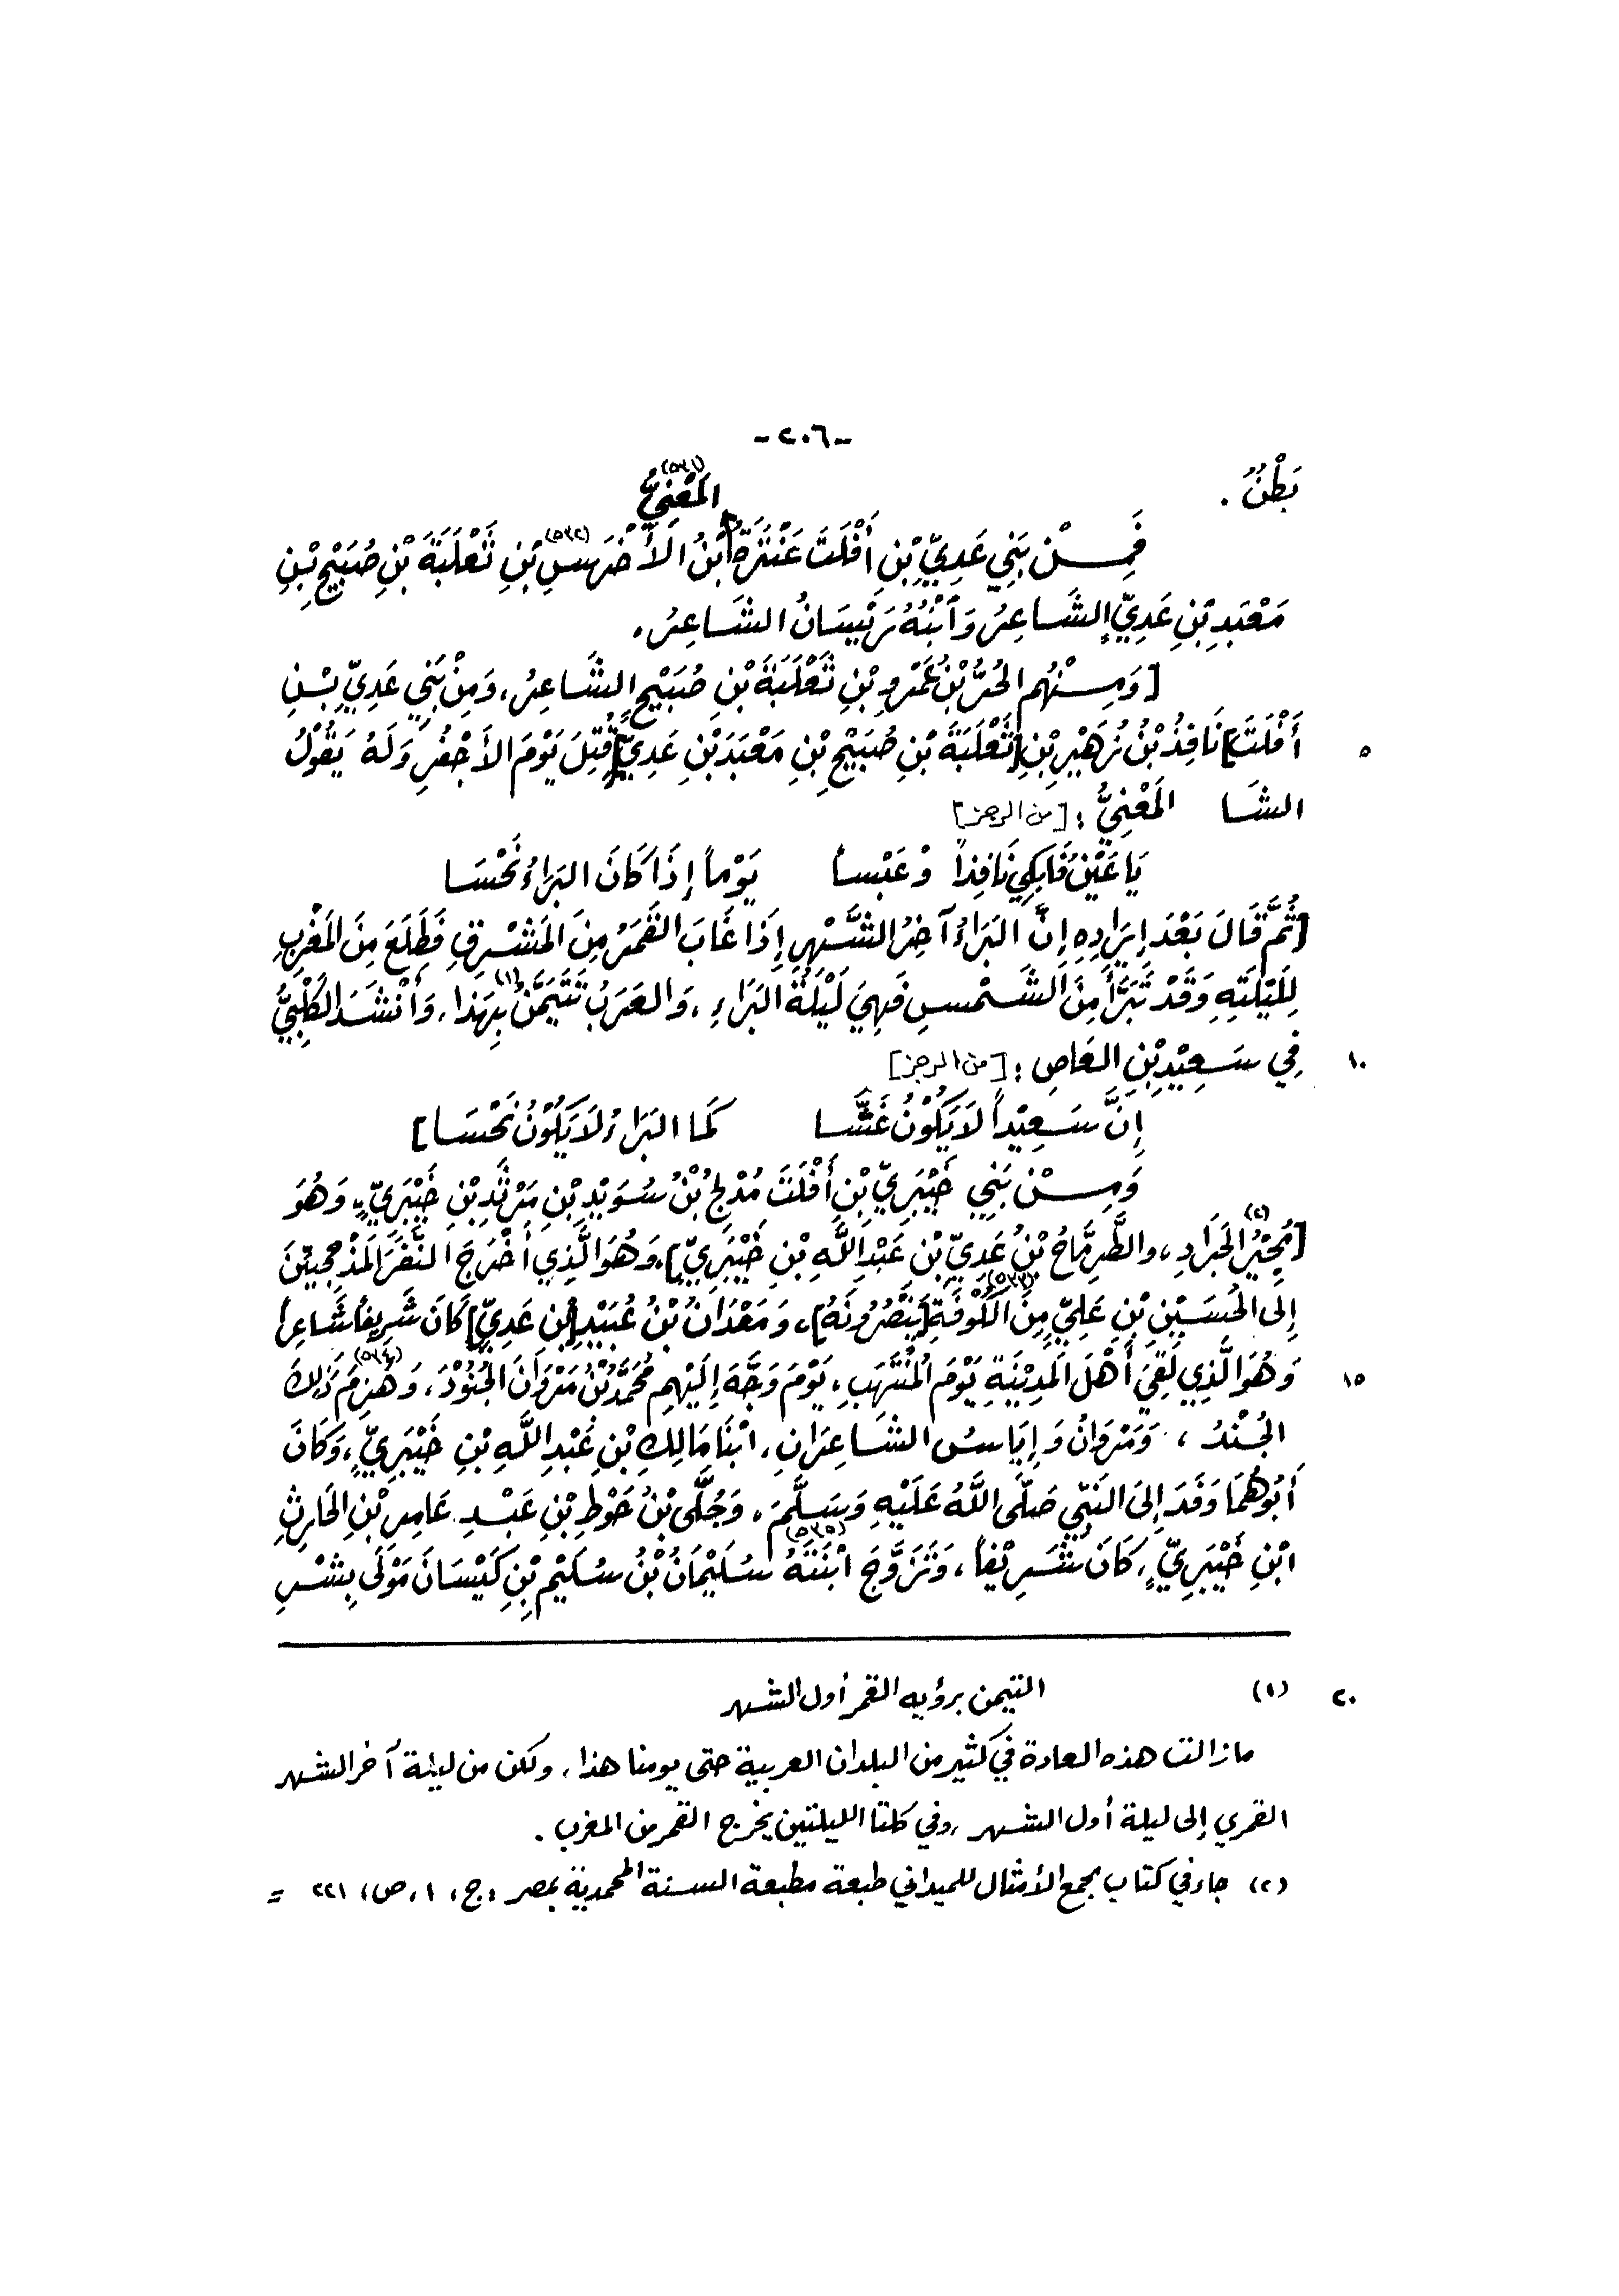 -٢٠٦-
بَطْنٌ .
المَعْنِيُّ (٥٣١)
فَمِنْ بَنِي عَدِيِّ بْنِ أَفْلَتَ عَنْتَرَةُ ابْنُ الأَخْرَسِ (٥٣٢) بْنِ ثَعْلَبَةَ بْنِ صُبَيْحِ بْنِ
مَعْبَدِ بْنِ عَدِيٍّ الشَّاعِرُ وَابْنُهُ الشَّاعِرُ .
[وَمِنْهُم الحُرُّ بْنُ عَمْرِو بْنِ ثَعْلَبَةَ بْنِ صُبَيْحٍ الشَّاعِرُ، وَمِنْ بَنِي عَدِيِّ بْنِ
٥ أَفْلَتَ] نَافِذُ بْنُ زُهَيْرِ بْنِ [ثَعْلَبَةَ بْنِ صُبَيْحِ بْنِ مَعْبَدَ بْنِ عَدِيٍّ] قُتِلَ يَوْمَ الأَجْفُرِ وَلَهُ يَقُوْلُ
الشَا المَعْنِيُّ : [من الرجز]
يَا عَيْنُ فَابكِي نَافِذاً وْ عَبْسا يَوْماً إِذَا كَانَ البَرَاءُ نَحْسَا
[ثُمَّ قَالَ بَعْدَ إِيرَادِهِ إِنَّ البَرَاءُ آخِرُ الشَّهْرِ إِذَا غَابَ القَمَرُ مِنَ المَشْرِقِ فَطَلَعَ مِنَ المَغْرِبِ
لِلَيْلَتِهِ وَقَدْ تَبَرَّأَ مِنَ الشَّمْسِ فَهِيَ لَيْلَةُ البَرَاءِ ، وَالعَرَبُ تَتَيَمَّنُ (١) بِهَذا، وَأَنْشَدَ الكَلْبِيُّ
١٠ فِي سَعِيْدِ بْنِ العَاصِ : [من الرجز]
إِنَّ سَعِيْداً لَا يَكُوْنُ غَشَّا كَمَا البَرَاءُ لَا يَكُوْنُ نَحْسَا]
وَمِنْ بَنِي خَيْبَرِيِّ بْنِ أَفْلَتَ مُدْلِجُ بْنُ سُوَيْدِ بْنِ مَرْثَدِ بْنِ خَيْبَرِيٍّ، وَهُوَ
[مُجِيْرُ الجَرَادِ (٢)، والطِّرِمَّاحُ بْنُ عَدِيِّ بْنِ عَبْدِ اللَّهِ بْنِ خَيْبَرِيٍّ]، وَهُوَ الَّذِي أَخْرَجَ النَّفَرَ المَذْحِجِيِّيْنَ
إِلى الحُسَيْنِ بْنِ عَلِيٍّ مِنَ الكُوْفَةِ (٥٣٣) [يَنْصُرُونَهُ]، وَمَعْدَانُ بْنُ عُبَيْدِ [بْنِ عَدِيٍّ] كَانَ شَرِيفاً شَاعِراً
١٥ وَهُوَ الَّذِي لَقِيَ أَهْلَ المَدِيْنَةِ يَوْمَ المُنْتَهَبِ، يَوْمَ وَجَّهَ إِلَيْهِم مُحَمَّدُ بْنُ مَرْوَانَ الجُنُوْدَ، وَهَزَمَ (٥٣٤) ذَلِكَ
الجُنْدُ ، وَمَرْوَانُ وَإِيَاسُ الشَّاعِرَانِ، ابْنَا مَالِكِ بْنِ عَبْدِ اللَّهِ بْنِ خَيْبَرِيٍّ، وَكَانَ
أَبُوهُمَا وَفَدَ إِلَى النَّبِيِّ صَلَّى اللَّهُ عَلَيْهِ وَسَلَّمَ، وَجُلَّى بْنُ حَوْطِ بْنِ عَبْدِ عَامِرِ بْنِ الحَارِثِ
ابْنِ خَيْبَرِيٍّ، كَانَ شَرِيْفاً، وَتَزَوَّجَ ابْنَتَهُ (٥٣٥) سُلَيْمَانُ بْنُ سُلَيْمِ بْنِ كَيْسَانَ مَوْلَى بِشْرِ
٢٠ (١) التيمن برؤيه القمر أول الشهر
مازالت هذه العادة في كثير من البلدان العربية حتى يومنا هذا، ولكن من ليلة آخر الشهر
القمري إلى ليلة أول الشهر ،وفي كلتا الليلتين يخرج القمر من المغرب .
(٢) جاء في كتاب مجمع الأمثال للميداني طبعة مطبعة السنة المحمدية بمصر ، ج، ١، ص، ٢٢١ =